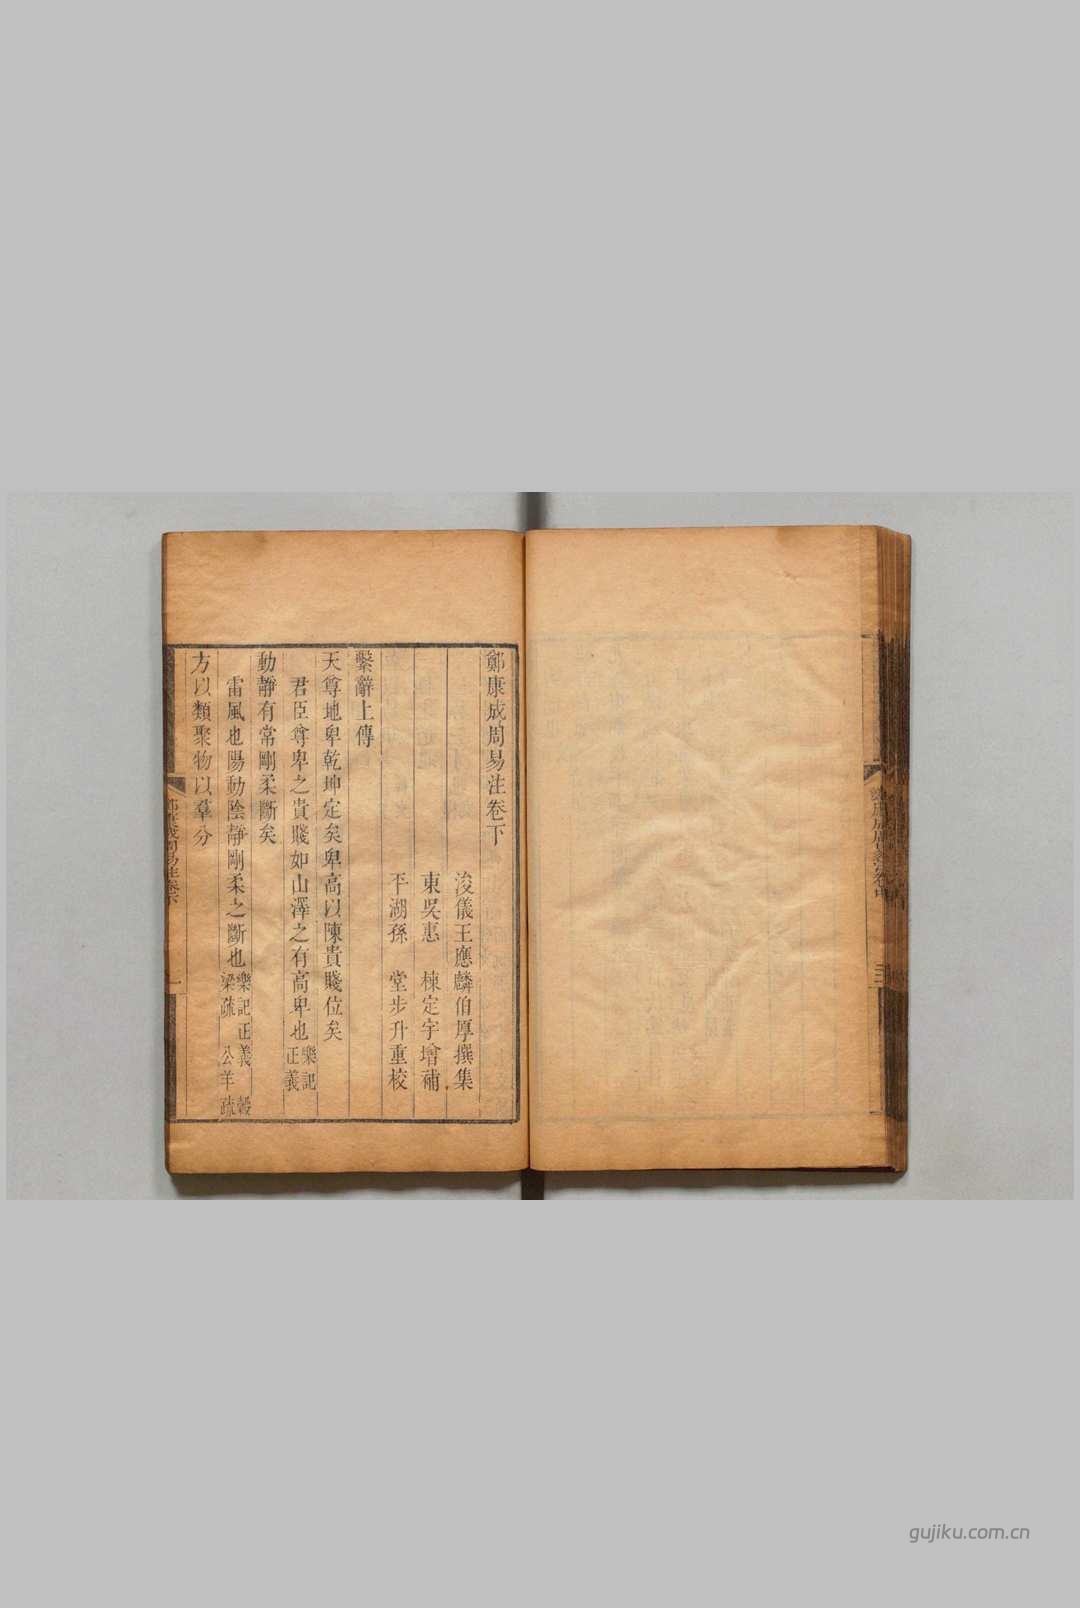 鄭康成周易注卷下
浚儀王應麟伯厚撰集
東吳惠 棟定宇增補
平湖孫 堂步升重校
繫辭上傳
天尊地卑乾坤定矣卑高以陳貴賤位矣
君臣尊卑之貴賤如山澤之有高卑也樂記正義
動靜有常剛柔斷矣
雷風也陽動陰靜剛柔之斷也樂記正義 穀梁疏 公羊疏
方以類聚物以羣分
鄭康成周易注卷下 一
gujiku.com.cn